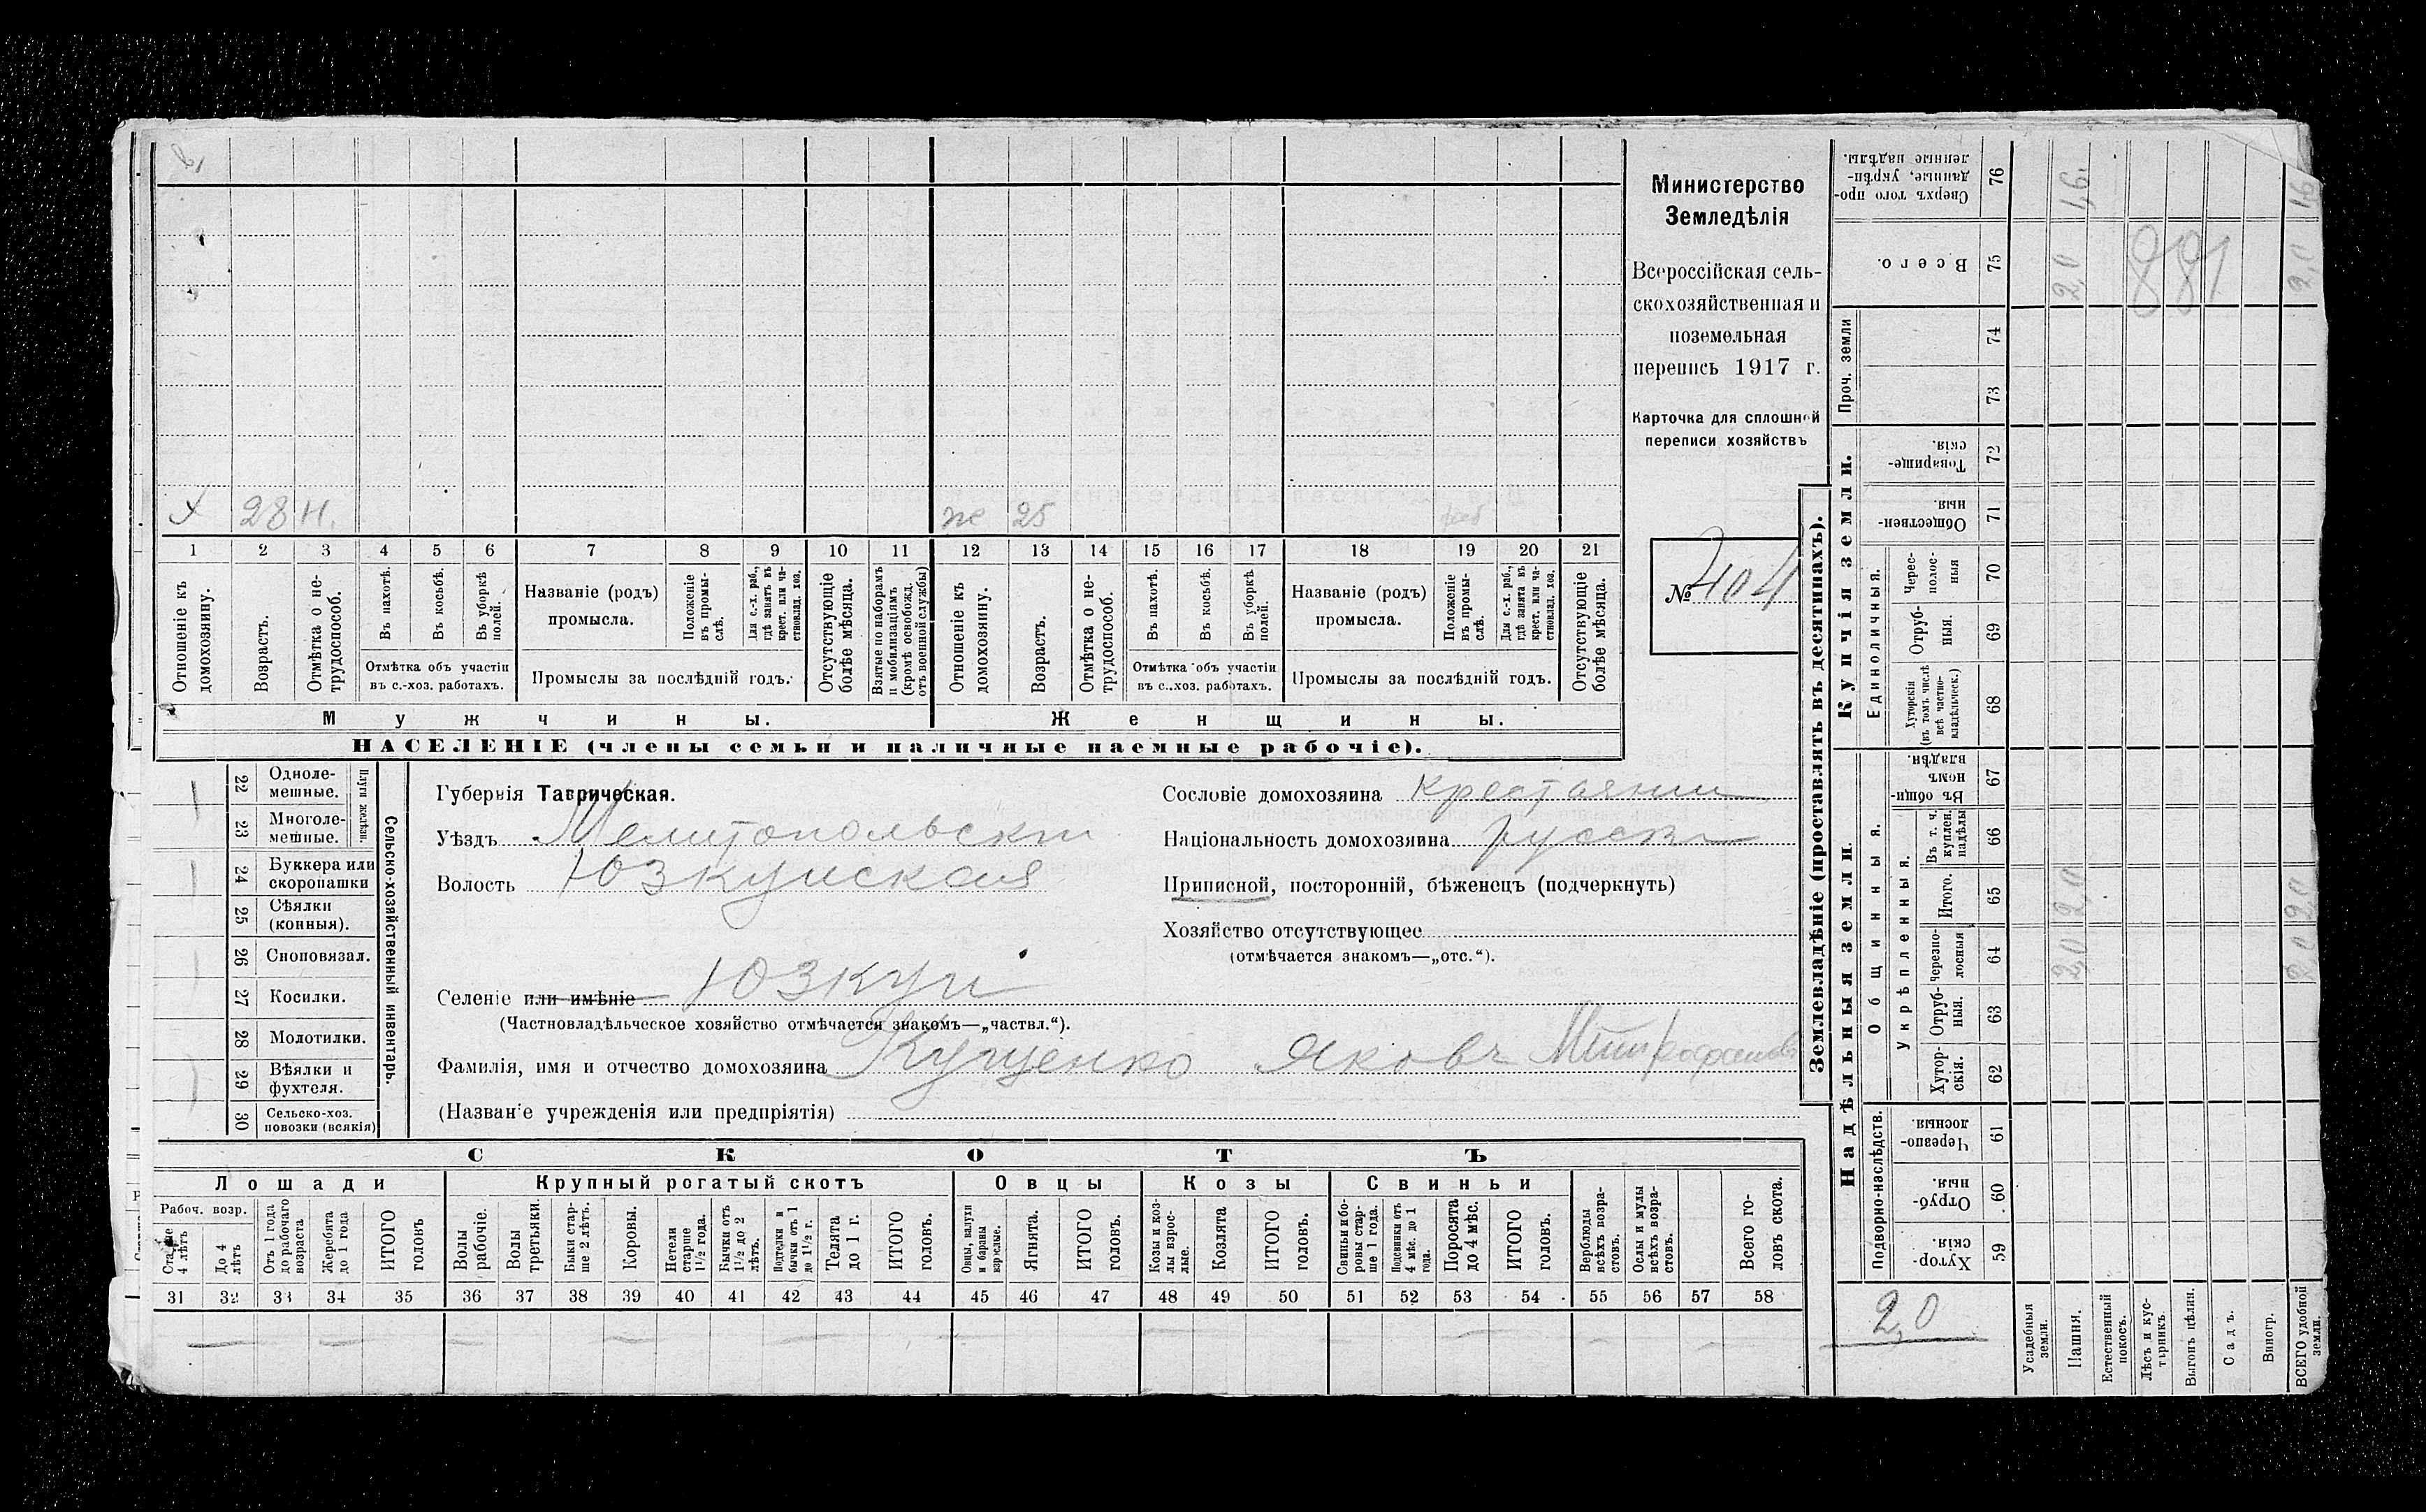 Х 28 н. же 25 раб
1 2 3 4 5 6 7 8 9 10 11 12 13 14 15 16 17 18 19 20 21
Отношеніе къ домохозяину.
Возрастъ.
Отмѣтка о нетрудоспособ.
Въ пахотѣ.
Въ косьбѣ.
Въ уборкѣ полей.
Отмѣтка объ участіи
въ с.-хоз. работахъ.
Названіе (родъ)
промысла.
Положеніе въ промыслѣ.
Для с.-х. раб., гдѣ занятъ въ крест. или частновлад. хоз.
Промыслы за послѣдній годъ.
Отсутствующіе болѣе мѣсяца.
Взятые по наборамъ и мобилизаціямъ (кромѣ освобожд. отъ военной службы)
Отношеніе къ домохозяину.
Возрастъ.
Отмѣтка о нетрудоспособ.
Въ пахотѣ.
Въ косьбѣ.
Въ уборкѣ полей.
Отмѣтка объ участіи
въ с.-хоз. работахъ.
Названіе (родъ)
промысла.
Положеніе въ промыслѣ.
Для с.-х. раб., гдѣ занята въ крест. или частновлад. хоз.
Промыслы за послѣдній годъ.
Отсутствующіе болѣе мѣсяца.
Мужчины. Женщины.
НАСЕЛЕНІЕ (члены семьи и наличные наемные рабочіе).
Министерство
Земледѣлія
Всероссійская сель-
скохозяйственная и
поземельная
перепись 1917 г.
Карточка для сплошной
переписи хозяйствъ
№ 404
22 Одноле-
мешные.
23 Многоле-
мешные.
Плуги желѣзн.
24 Буккера или
скоропашки
25 Сѣялки
(конныя).
26 Сноповязал.
27 Косилки.
28 Молотилки.
29 Вѣялки и
фухтеля.
30 Сельско-хоз.
повозки (всякія)
Сельско-хозяйственный инвентарь.
Губернія Таврическая.
Уѣздъ Мелитопольскій
Волость Юзкуйская
Селеніе или имѣніе Юзкуи
(Частновладѣльческое хозяйство отмѣчается знакомъ—„частвл.“).
Фамилія, имя и отчество домохозяина Кущенко Яковъ Митрофанов
(Названіе учрежденія или предпріятія)
Сословіе домохозяина крестьянин
Національность домохозяина русскій
Приписной, посторонній, бѣженецъ (подчеркнуть)
Хозяйство отсутствующее
(отмѣчается знакомъ—„отс.“).
СКОТЪ
Лошади Крупный рогатый скотъ Овцы Козы Свиньи
Рабоч. возр.
Старше 4 лѣтъ
До 4 лѣтъ
Отъ 1 года до рабочаго возраста
Жеребята до 1 года
ИТОГО головъ
Волы рабочіе.
Волы третьяки.
Быки старше 2 лѣтъ.
Коровы.
Нетели старше 1½ года.
Бычки отъ 1½ до 2 лѣтъ.
Подтелки и бычки отъ 1 до 1½ г.
Телята до 1 г.
ИТОГО головъ.
Овцы, валухи и бараны взрослые.
Ягнята.
ИТОГО головъ.
Козы и козлы взрослые.
Козлята
ИТОГО головъ.
Свиньи и боровы старше 1 года.
Подсвинки отъ 4 мѣс. до 1 года.
Поросята до 4 мѣс.
ИТОГО головъ.
Верблюды всѣхъ возрастовъ.
Ослы и мулы всѣхъ возрастовъ.
Всего головъ скота.
31 32 33 34 35 36 37 38 39 40 41 42 43 44 45 46 47 48 49 50 51 52 53 54 55 56 57 58
Землевладѣніе (проставлять въ десятинахъ).
Сверхъ того проданные, укрѣпленные надѣлы. 76 1,6 1,6
Всего. 75 2,0 881 2,0
Проч. земли 74
73
Купчія земли.
Товарищескія. 72
Общественныя 71
Единоличныя.
Чересполосныя 70
Отрубныя. 69
Хуторскія (въ томъ числѣ всѣ частновладѣльческ.) 68
Надѣльныя земли.
Общинныя.
Въ общинномъ владѣн. 67
Укрѣпленныя.
Въ т. ч. куплен. надѣлы 66
Итого. 65 2,0 2,0
Черезполосныя 64 2,0 2,0
Отрубныя. 63
Хуторскія. 62
Подворно-наслѣдств.
Черезполосныя. 61
Отрубныя 60
Хуторскія. 59
2,0
Усадебныя земли.
Пашня.
Естественный покосъ.
Лѣсъ и кустарникъ.
Выгонъ цѣлин.
Садъ.
Виногр.
ВСЕГО удобной земли.